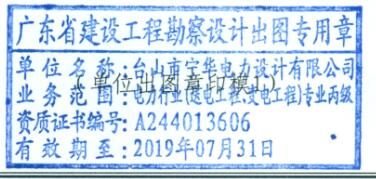 广东省建设工程勘察设计出图专用章
单位名称:台山市宝华电力设计有限公司
(单位出图章印模)
业务范围:电力行业(送电工程、变电工程)专业丙级
资质证书编号:A244013606
有效期至:2019年07月31日